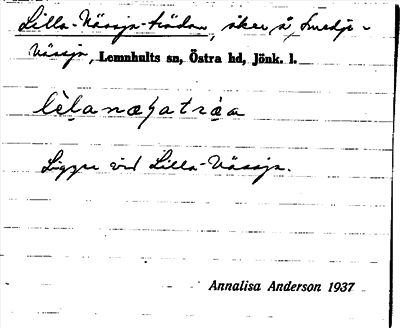 Lilla-Nässja-trädan, åker å Smedje-
Nässja, Lemnhults sn, Östra hd, Jönk. l.
Ligger vid Lilla-Nässja.
Annalisa Anderson 1937